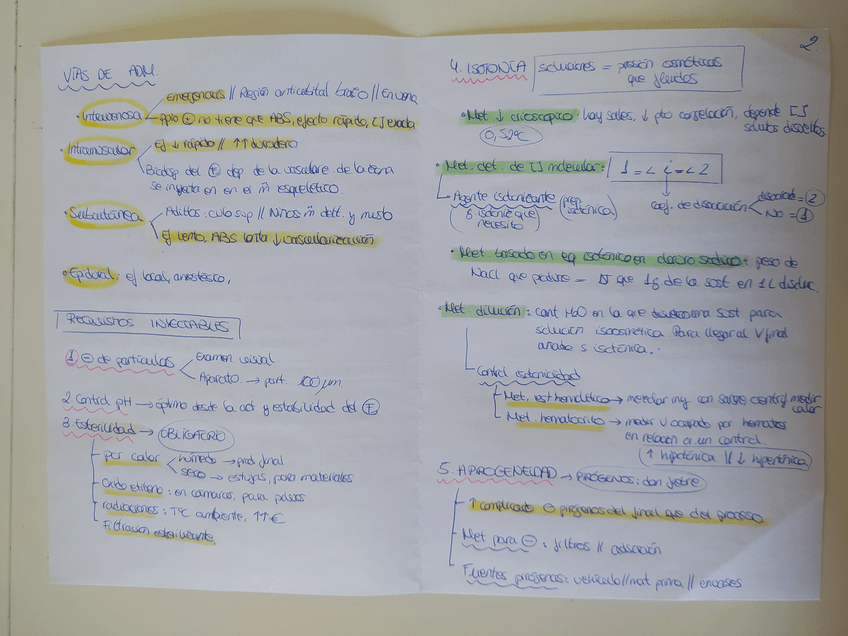 2
VÍAS DE ADM.
· Intravenosa
Emergencias // Región anticubital brazo // En vena
Ppio ⊕ no tiene que ABS, efecto rápido, [] exacta
· Intramuscular
Ef ↓ rápido // ↑↑ duradero
Biodisp del Ⓕ dep. de la vasculare. de la zona
se inyecta en en el m̄ esquelético.
· Subcutánea
Adultos: culo sup // Niños m̄ delt. y muslo
Ef lento, ABS lenta ↓ vascularización
· Epidural: ef local, anestésico,
REQUISITOS INYECTABLES
1 ⊖ de partículas
Examen visual
Aparato → part. 100 µm
2 Control pH → óptimo desde la act y estabilidad del Ⓕ
3 Esterilidad → OBLIGATORIO
por calor
húmedo → prod final
seco → estufas, para materiales
Oxido etileno: en cámaras, para polvos
radiaciones: Tª ambiente, ↑↑ €
Filtración esterilizante
4. ISOTONÍA
soluciones = presión osmóticas
que fluidos
· Met ↓ crioscópico: hay sales, ↓ pto congelación, depende []
solutos disueltos
0,52ºC
· Met. det. de [] molecular: 1 = < i = < 2
Agente isotonizante (prep. isotónica)
(g isotónic que
necesito)
coef. de disociación
disocia = 2
No = 1
· Met. basado en eq isotónico en cloruro sódico: peso de
NaCl que produce = π que 1g de la sost en 1L disluc.
· Met dilución: cant H2O en la que disuelvo una sost para
solución isoosmótica. Para llegar al V final
añado s isotónica.
Control isotonicidad
Met. est hemolítico → mezclar iny con sangre control medir
calor
Met. hematocrito → medir V ocupado por hematíes
en relación a un control.
↑ hipotónica // ↓ hipertónica
5. APIROGENEIDAD → PIRÓGENOS: dan fiebre
↑ complicado ⊖ pirógenos del final que del proceso
Met para ⊖: filtros // adsorción
Fuentes pirógenas: vehículo // mat prima // envases